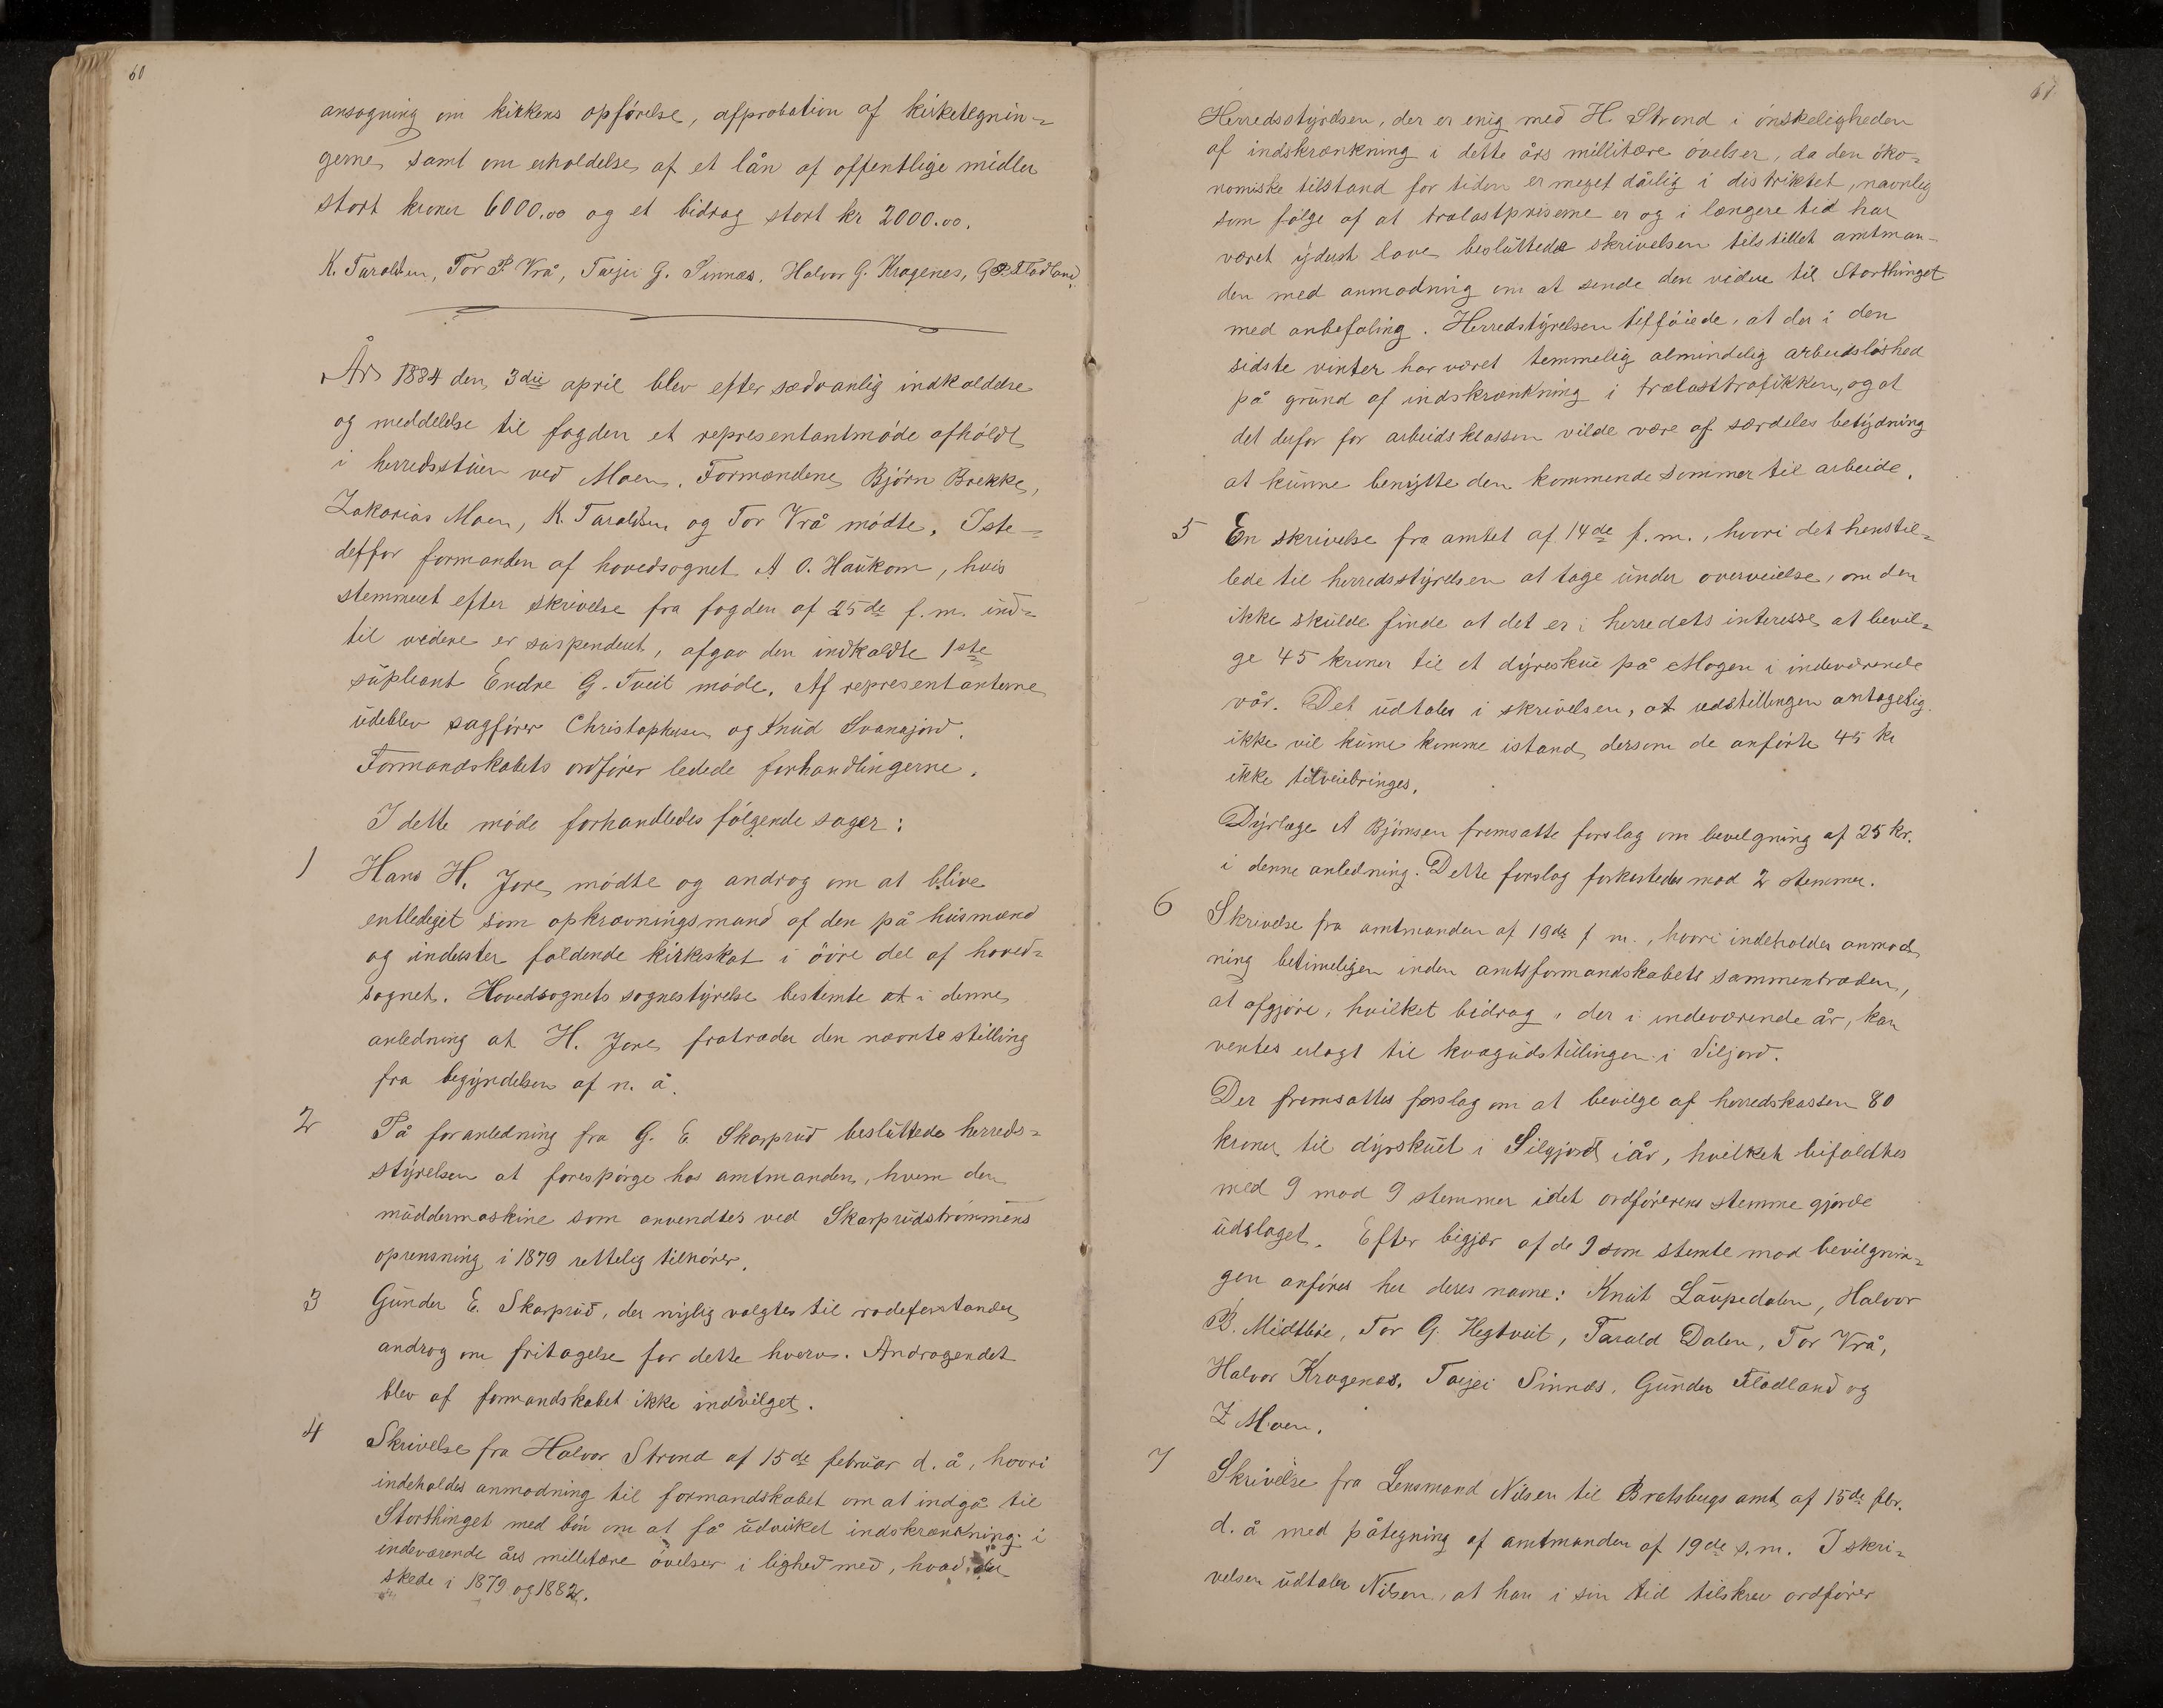 60
ansøgning om kirkens opførelse, afprobation af kirketegnin-
gerne samt om erholdelse af et lån af offentlige midler
stort kroner 6000.00 og et bidrag stort kr 2000.00.
K. Taraldsen, Tor P. Vrå, Taijei G. Sinnes, Halvor G. Kragenes, G. P. Flodland.
År 1884 den 3die april blev efter sædvanlig indkaldelse
og meddelelse til fogden et representantmøde afholdt
i herredsstuen ved Moen. Formændene Bjørn Brekke,
Zakarias Moen, K. Taraldsen og Tor Vrå mødte. Iste-
detfor formanden af hovedsognet A O. Haukom, hvis
stemmeret efter skrivelse fra fogden af 25de f.m. ind-
til videre er suspenderet, afgav den indkaldte 1ste
supleant Endre G. Tveit møde. Af representanterne
udeblev sagfører Christophersen og Knud Svanajord.
Formandskabets ordfører ledede forhandlingerne.
I dette møde forhandledes følgende sager:
1 Hans H. Jore mødte og androg om at blive
entlediget som opkrævningsmand af den på husmænd
og inderster faldende kirkeskat i øvre del af hoved-
sognet. Hovedsognets sognestyrelse bestemte at i denne
anledning at H. Jore fratræder den nævnte stilling
fra begyndelsen af n. å.
2 På foranledning fra G. E Skarprud besluttede herreds-
styrelsen at forespørge hos amtmanden, hvem den
muddermaskine som anvendtes ved Skarprudstrømmens
oprensning i 1879 rettelig tilhører.
3 Gunder E. Skarprud, der nylig valgtes til rodeforstander
androg om fritagelse for dette hverv. Andragendet
blev af formandskabet ikke indvilget.
4 Skrivelse fra Halvor Strond af 15de februar d. å, hvori
indeholdes anmodning til formandskabet om at indgå til
Storthinget med bøn om at få udvirket indskrænkning i
indeværende års millitære øvelser i lighed med, hvad der
skede i 1879 og 1882.
61
Herredsstyrelsen, der er enig med H. Strond i ønskeligheden
af indskrænkning i dette års millitære øvelser, da den øko-
nomiske tilstand for tiden er meget dårlig i distriktet, navnlig
som følge af at trælastpriserne er og i længere tid har
været yderst lave besluttede skrivelsen tilstillet amtman-
den med anmodning om at sende den videre til Storthinget
med anbefaling. Herredstyrelsen tilføiede, at der i den
sidste vinter har været temmelig almindelig arbeidsløshed
på grund af indskrænkning i trælasttrafikken, og at
det derfor for arbeidsklassen vilde være af særdeles betydning
at kunne benytte den kommende sommer til arbeide.
5 En skrivelse fra amtet af 14de f. m., hvori det henstil-
lede til herredsstyrelsen at tage under overveielse, om den
ikke skulde finde at det er i herredets interesse at bevil-
ge 45 kroner til et dyreskue på Mogen i indeværende
vår. Det udtales i skrivelsen, at udstillingen antagelig
ikke vil kunne komme istand dersom de anførte 45 kr
ikke tilveiebringes.
Dyrlæge A Bjørnsen fremsatte forslag om bevilgning af 25 kr.
i denne anledning. Dette forslag forkastedes mod 2 stemmer.
6 Skrivelse fra amtmanden af 19de f m., hvori indeholdes anmod-
ning betimeligen inden amtsformandskabets sammentræden,
at afgjøre, hvilket bidrag, der i indeværende år, kan
ventes erlagt til kvægudstillingen i Siljord.
Der fremsattes forslag om at bevilge af herredskassen 80
kroner til dyrskuet i Silgjord iår, hvilket bifaldtes
med 9 mod 9 stemmer idet ordførerens stemme gjorde
udslaget. Efter begjær af de 9 som stemte mod bevilgnin-
gen anføres her deres navne: Knut Laupedalen, Halvor
B. Midtbøe, Tor G. Hegtveit, Tarald Dalen, Tor Vrå,
Halvor Kragenes, Taijei Sinnes, Gunder Flodland og
Z Moen.
7 Skrivelse fra Lensmand Nilsen til Bratsbergs amt af 15de febr.
d. å med påtegning af amtmanden af 19de s. m. I skri-
velsen udtaler Nilsen, at han i sin tid tilskrev ordfører